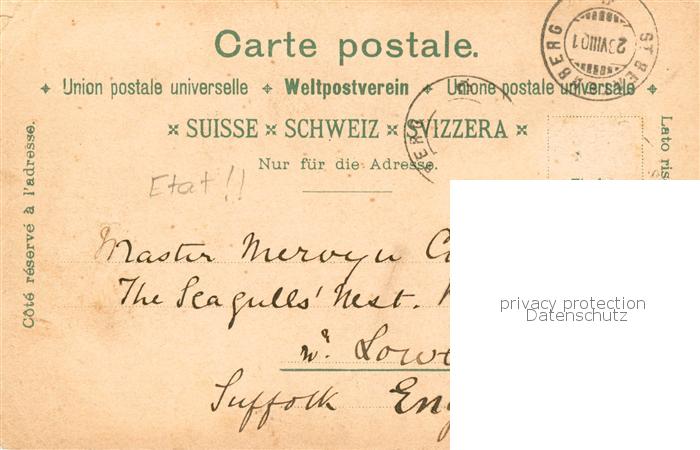 Carte postale.
Union postale universelle Weltpostverein Unione postale universale
SUISSE × SCHWEIZ × SVIZZERA
Nur für die Adresse.
Côté réservé à l'adresse.
Lato ris
23 VIII 01
BERG
Etat !!
Master Mervyn C
The Seagulls' Nest.
nr Lowe
Suffolk Eng
privacy protection
Datenschutz